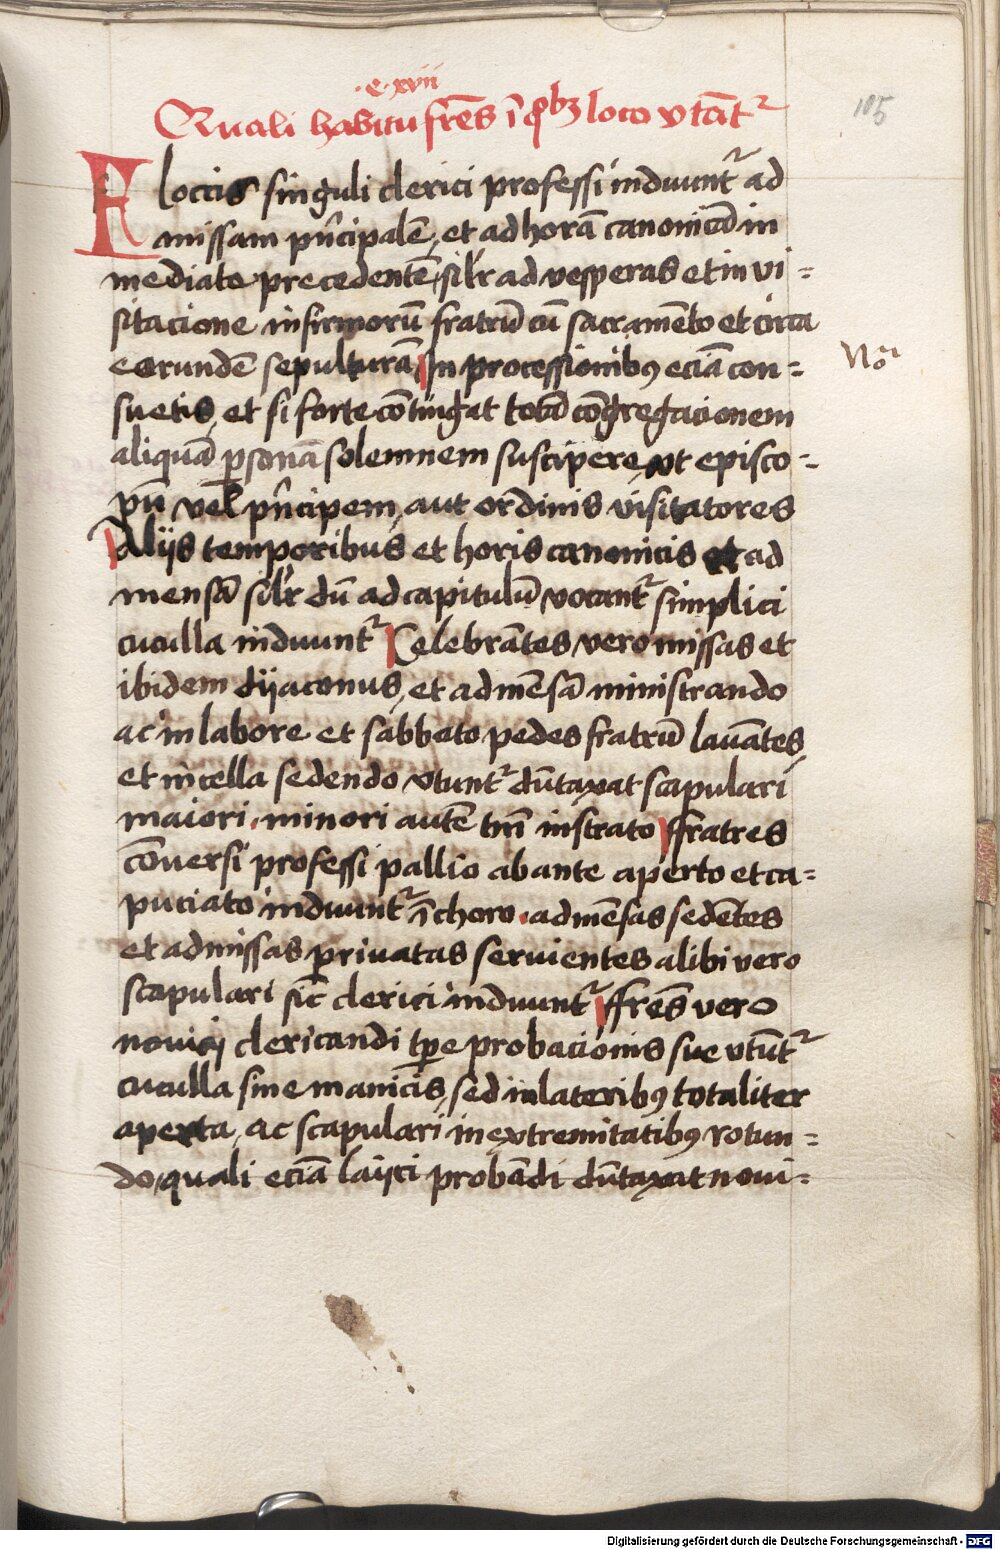 .c. xvii
Quali habitu fr̄es ī q̊bꝫ loco vtāt᷑
Floccis singuli clerici professi induunt᷑ ad
missam pn̄cipalē, et ad horā canonicā in
mediate precedentē, sil̄r ad vesperas et in vi=
sitacione infirmorū fratrū cū sacramēto et circa
eorundē sepulturā In processionibꝰ eciā con=
suetis, et si forte cōtingat totā cōgregacionem
aliquā ꝑsonā solemnem suscipere, vt episco=
pū vel pn̄cipem, aut ordinis visitatores
Alijs temporibus et horis canonicis et ad
mensā sil̄r dū ad capitulū vocant᷑ simplici
cuculla induunt᷑ Celebrātes vero missas et
ibidem dyaconus, et ad mēsā ministrando
ac in labore et sabbato pedes fratrū lauātes,
et in cella sedendo vtunt᷑ dūtaxat scapulari
maiori. minori autē tm̄ in strato ffratres
cōuersi professi pallio abante aperto et ca=
puciato induunt᷑ ī choro. ad mēsas sedētes
et ad missas priuatas seruientes alibi vero
scapulari sic̄ clerici induunt᷑ ffrēs vero
nouicij clericandi tꝑe probacionis sue vtūt᷑
cuculla sine manicis, sed in lateribꝰ totaliter
aperta, ac scapulari in extremitatibꝰ rotun=
do, quali eciā layci probādi dūtaxat noui=
Noᵃ
105
Digitalisierung gefördert durch die Deutsche Forschungsgemeinschaft - DFG
DFG